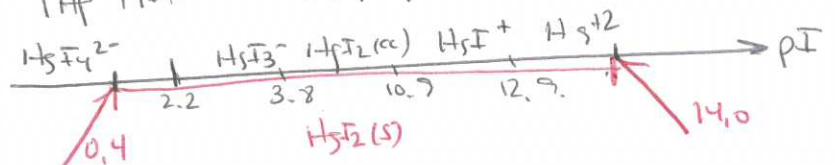 HgI₄²⁻ HgI₃⁻ HgI₂(ac) HgI⁺ Hg⁺² pI
2.2 3.8 10.9 12.9.
0,4 HgI₂(s) 14,0